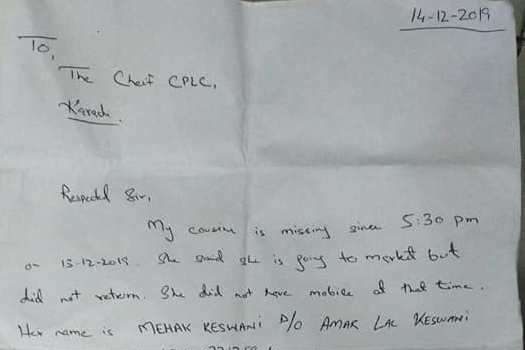 14-12-2019
To,
The Cheif CPLC,
Karachi.
Respected Sir,
My cousin is missing since 5:30 pm
on 13-12-2019. She said she is going to market but
did not return. She did not have mobile at that time.
Her name is MEHAK KESWANI D/O AMAR LAL KESWANI